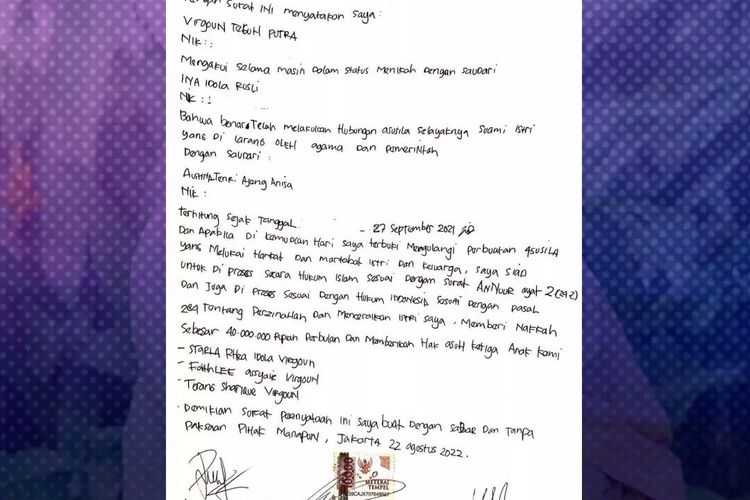 surat INI menyatakan saya :
VIRGOUN TEGUH PUTRA
NIK : :
Mengakui selama masih dalam status menikah dengan saudari
INA IDOLA RUSLI
NIK : :
Bahwa benar telah melakukan Hubungan asusila selayaknya suami istri
yang di larang oleh agama dan pemerintah
Dengan saudari :
AUSHIA TENRI Ajeng Anisa
NIK :
terhitung sejak tanggal - 27 September 2021
Dan Apabila Di kemudian Hari saya terbukti Mengulangi perbuatan Asusila
yang Melukai Harkat Dan martabat istri Dan keluarga, saya siap
untuk Di proses secara Hukum Islam sesuai Dengan surat ANNUUR ayat 2 (24:2)
Dan juga Di proses sesuai Dengan Hukum Indonesia sesuai Dengan pasal
284 Tentang Perzinahan Dan Menceraikan istri saya, Memberi Nafkah
Sebesar 40.000.000 Rupiah Perbulan Dan Memberikan Hak asuh ketiga Anak kami
- STARLA Rhea IDOLA VIRGOUN
- FAITHLEE assyaire VIRGOUN
- Terans Sharique VIRGOUN
. Demikian surat pernyataan ini saya buat Dengan sadar Dan Tanpa
paksaan Pihak Manapun, Jakarta 22 agustus 2022.
10000
METERAI
TEMPEL